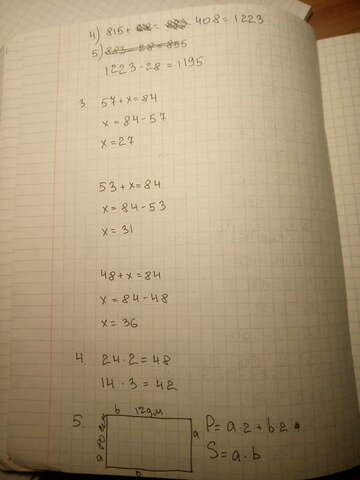 4) 815+ 408=1223
5) 883-28=855
1223-28=1195
3. 57+x=84
x=84-57
x=27
53+x=84
x=84-53
x=31
48+x=84
x=84-48
x=36
4. 24·2=48
14·3=42
5. b 12дм
a a P=a·2+b·2
b S=a·b